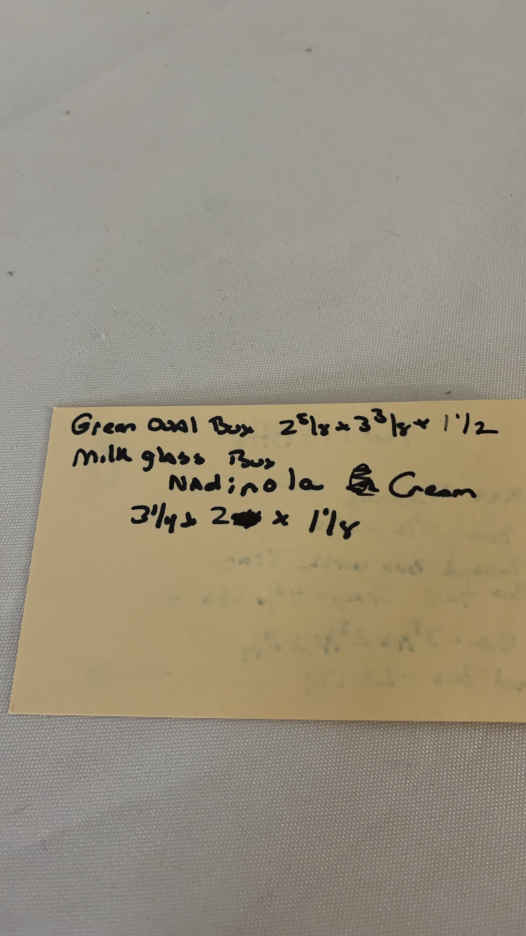 Green Oval Box 2 5/8 x 3 3/8 x 1 1/2
Milk glass Box
Nadinola Cream
3 1/4 x 2 x 1 1/8